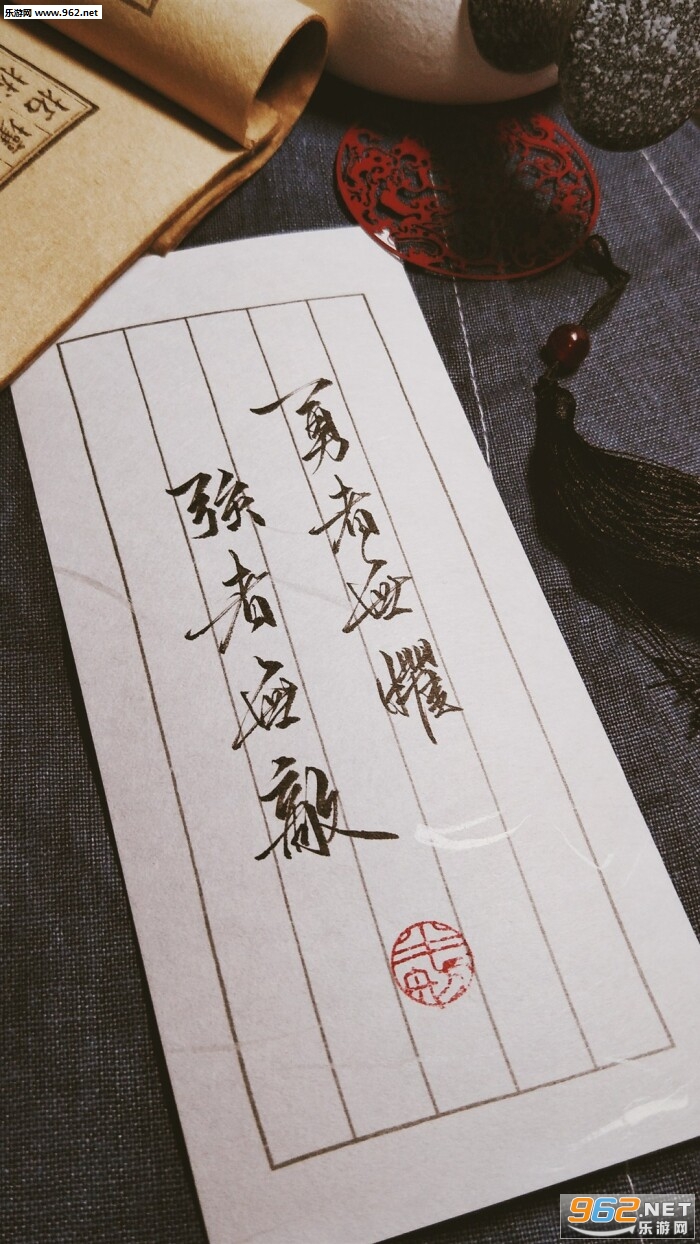 乐游网 www.962.net
勇者無懼
強者無敵
962.NET
乐游网